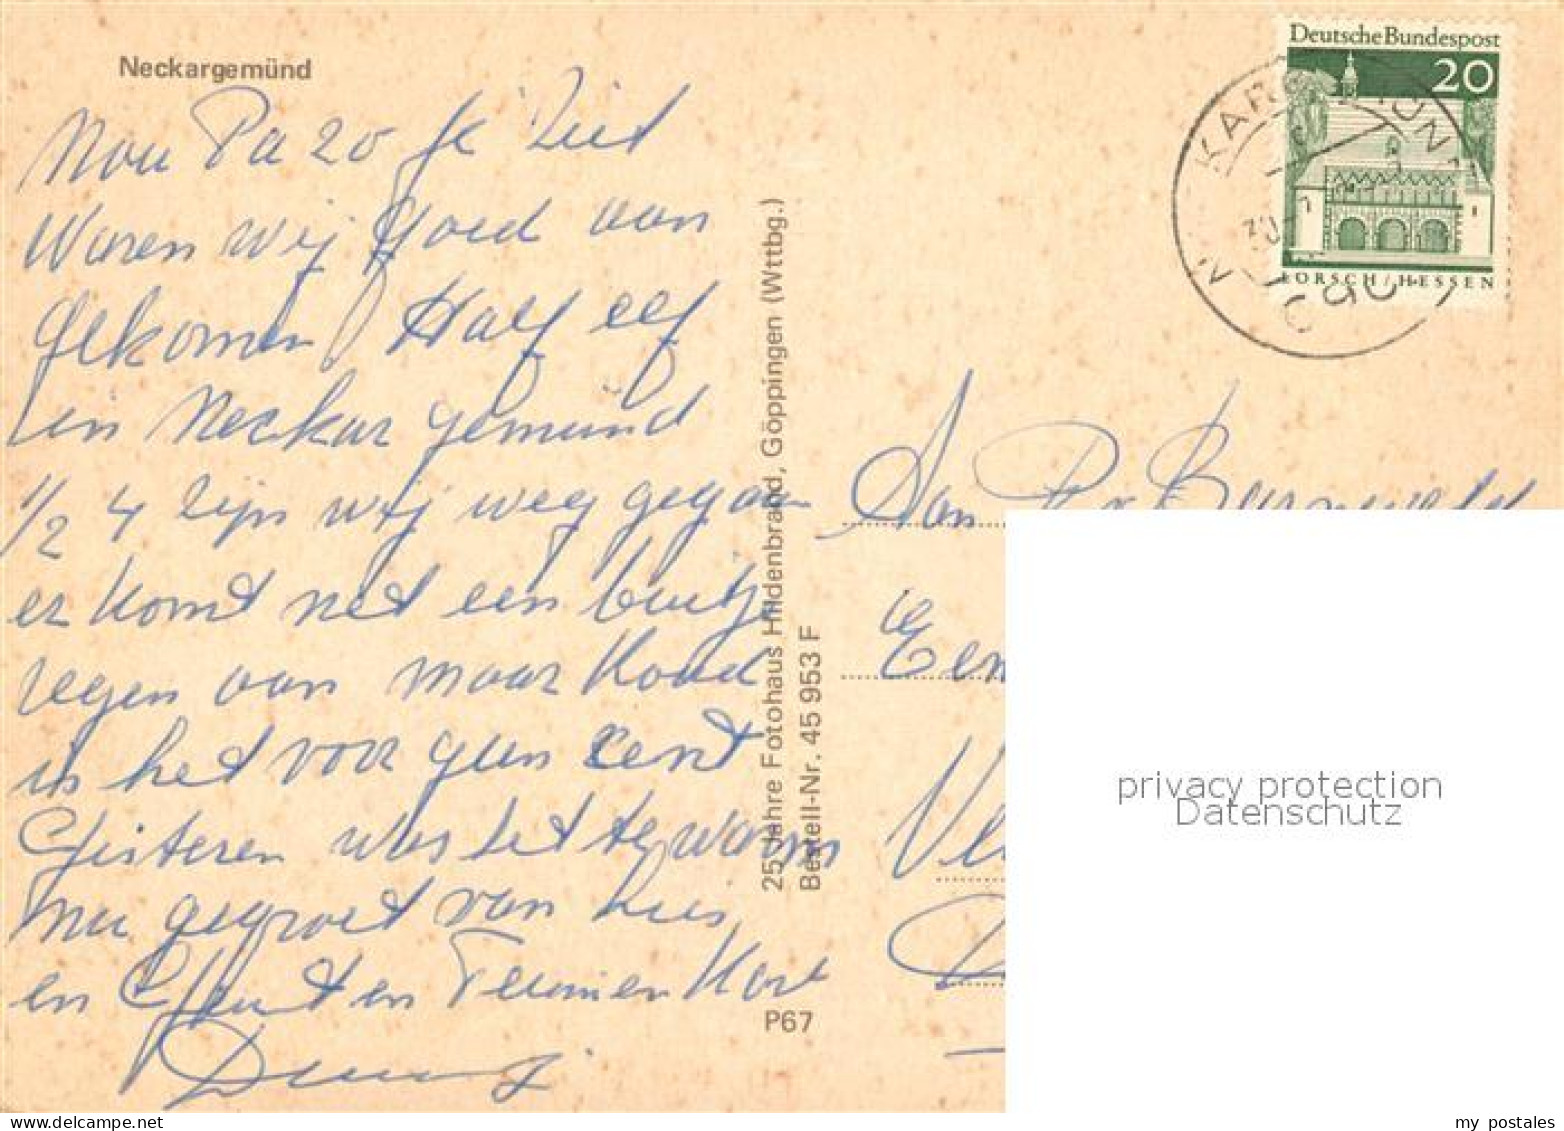 Neckargemünd
Nou Pa zo je ziet
Waren wij goed aan
gekomen Half elf
in Neckar gemund
1/2 4 zijn wij weg gegaan
er komt net een buitje
regen aan maar koud
is het voor geen cent
Gisteren was het te warm
nu gegroet van Kees
en en
25 Jahre Fotohaus Hildenbrand, Göppingen (Wttbg.)
Bestell-Nr. 45 953 F
P67
Deutsche Bundespost
20
LORSCH/HESSEN
Aan
privacy protection
Datenschutz
my postales